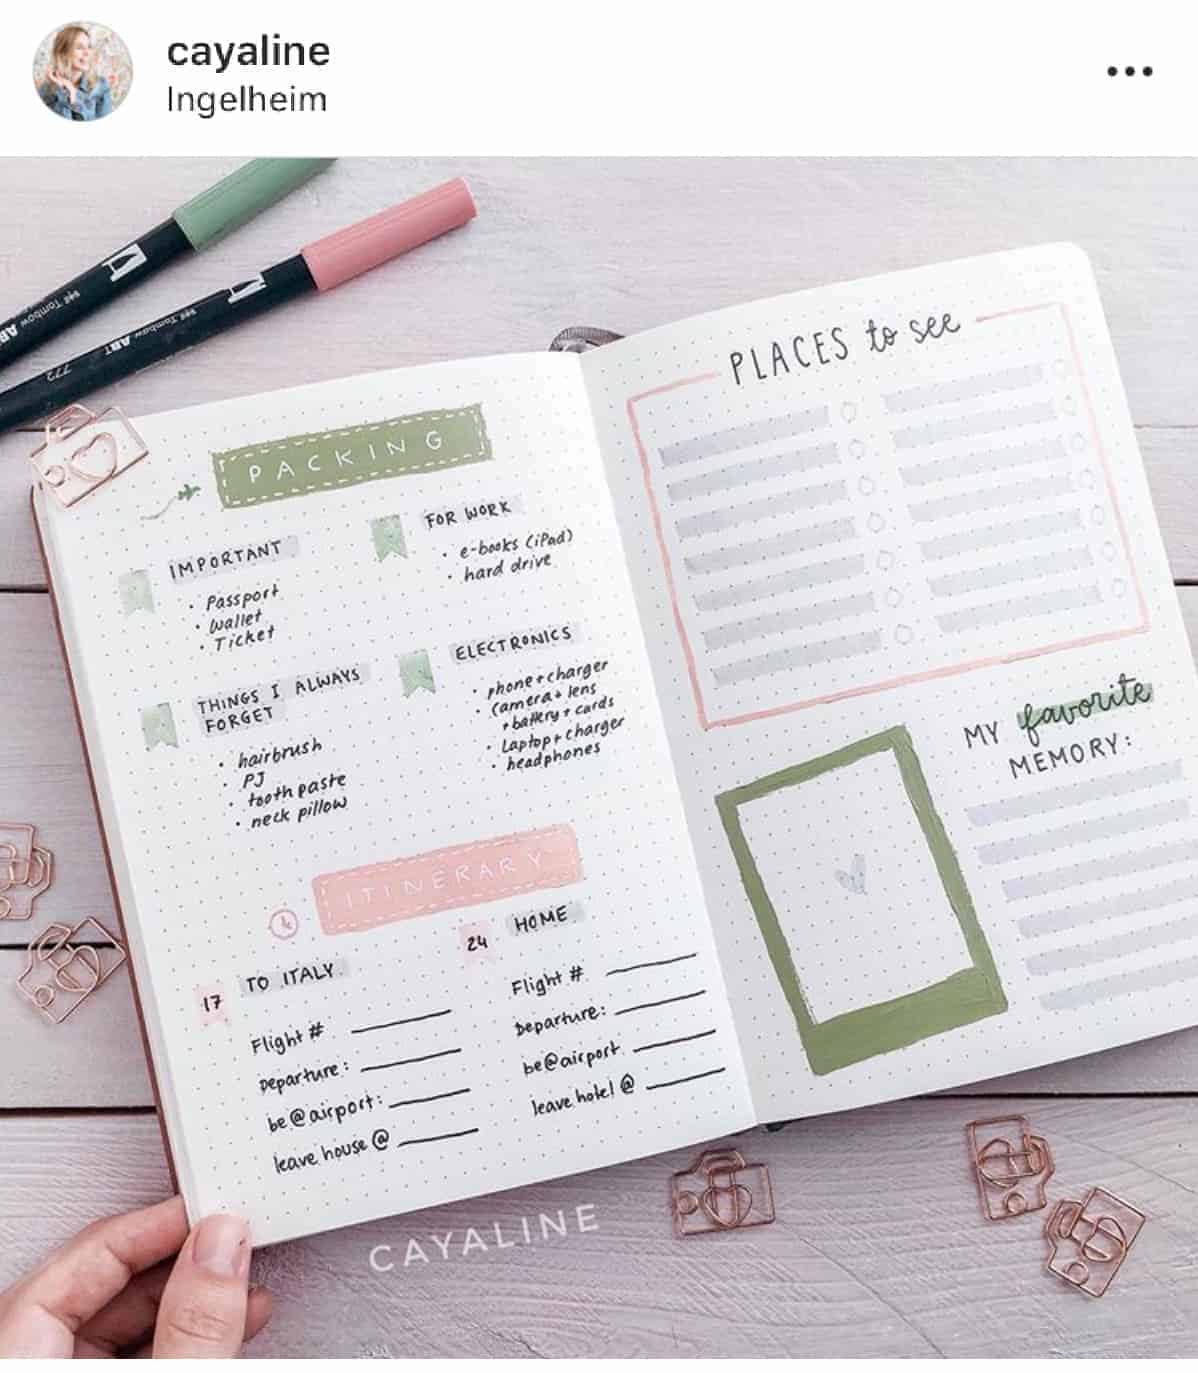 cayaline
Ingelheim
Tombow ABT
772 Tombow ABT
PACKING
IMPORTANT
• Passport
• Wallet
• Ticket
FOR WORK
• e-books (iPad)
• hard drive
THINGS I ALWAYS
FORGET
• hairbrush
• PJ
• tooth paste
• neck pillow
ELECTRONICS
• phone + charger
• camera + lens
+ battery + cards
• Laptop + charger
• headphones
ITINERARY
17 TO ITALY
Flight #
Departure:
be@airport:
leave house @
24 HOME
Flight #
Departure:
be@airport
leave hotel @
PLACES to see
MY favorite
MEMORY:
CAYALINE